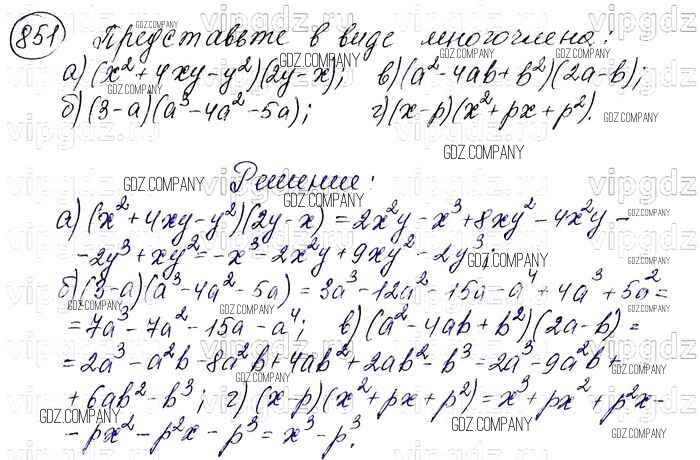 851 Представьте в виде многочлена:
а) (x² + 4xy - y²)(2y - x); в) (a² - 4ab + b²)(2a - b);
б) (3 - a)(a³ - 4a² - 5a); г) (x - p)(x² + px + p²).
Решение:
а) (x² + 4xy - y²)(2y - x) = 2x²y - x³ + 8xy² - 4x²y -
- 2y³ + xy² = -x³ - 2x²y + 9xy² - 2y³;
б) (3 - a)(a³ - 4a² - 5a) = 3a³ - 12a² - 15a - a⁴ + 4a³ + 5a² =
= 7a³ - 7a² - 15a - a⁴; в) (a² - 4ab + b²)(2a - b) =
= 2a³ - a²b - 8a²b + 4ab² + 2ab² - b³ = 2a³ - 9a²b +
+ 6ab² - b³; г) (x - p)(x² + px + p²) = x³ + px² + p²x -
- px² - p²x - p³ = x³ - p³.
GDZ.COMPANY
vipgdz